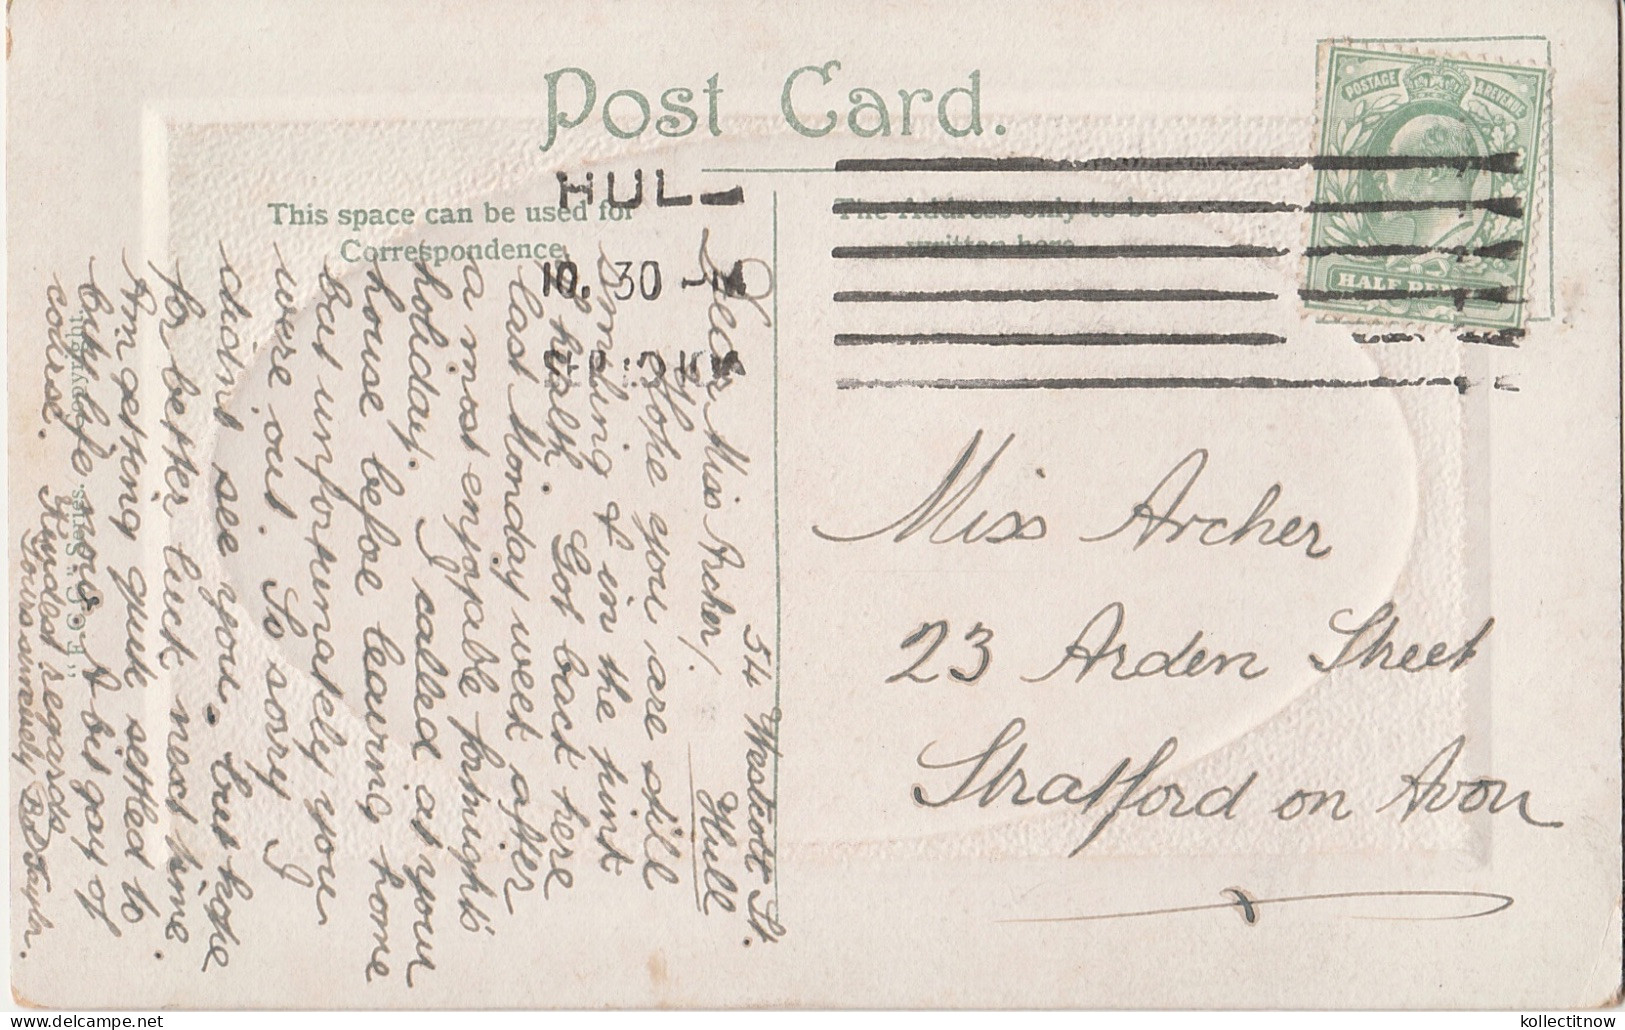 Post Card.
HULL
This space can be used for
Correspondence.
The Address only to be
written here.
10. 30
POSTAGE & REVENUE
HALF PENNY
54 Westcott St.
Hull
Dear Miss Archer/.
Hope you are still
smiling & in the pink
of health. Got back here
last Monday week after
a most enjoyable fortnight's
holiday. I called at your
house before leaving home
but unfortunately you
were out. So sorry I
didnt see you. but hope
for better luck next time.
Am getting quite settled to
busy life now. A bit gay of
course. Kindest regards
Yours sincerely B. D Taylor.
"E.C.C." Series. Copyright.
Miss Archer
23 Arden Street
Stratford on Avon
kollectitnow